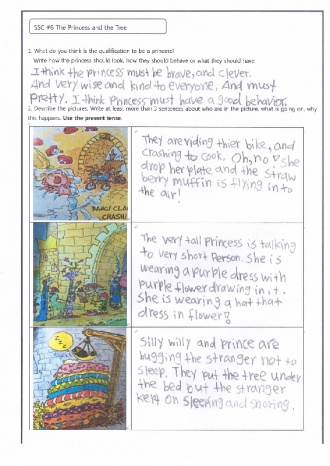 SSC #6 The Princess and the Tree
1. What do you think is the qualification to be a princess?
Write how the princess should look, how they should behave or what they should have
I think the princess must be brave, and clever.
And very wise and kind to everyone. And must
pretty. I think Princess must have a good behavior.
2. Describe the pictures. Write at least more than 3 sentences about who are in the picture, what is going on or, why
this happens. Use the present tense.
They are riding thier bike, and
crashing to cook. Oh, no she
drop her plate and the straw
berry muffin is flying in to
the air!
BANG! CLA
CRASH!
The very tall princess is talking
to very short person. She is
wearing a purple dress with
purple flower drawing in it.
She is wearing a hat that
dress in flower!
Silly willy and prince are
bugging the stranger not to
sleep. They put the tree under
the bed but the stranger
kept on sleeping and snoring.